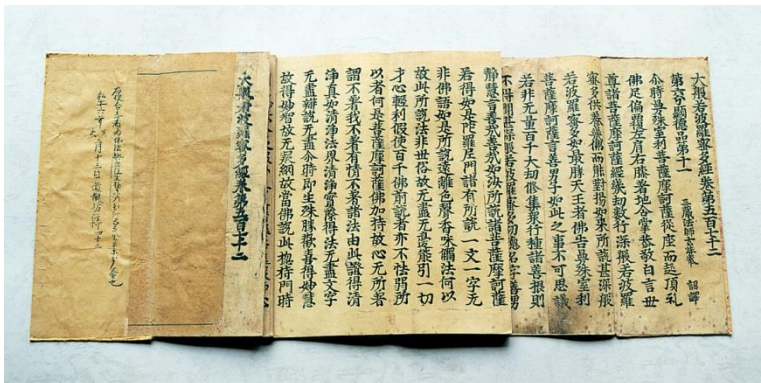 大般若波羅蜜多經卷第五百七十二
三藏法師玄奘奉 詔譯
第六分顯德品第十一
尒時曼殊室利菩薩摩訶薩從座而起頂礼
佛足偏露左肩右膝著地合掌恭敬白言世
尊諸菩薩摩訶薩經幾劫數行深般若波羅
蜜多供養幾佛而能對揚如来所說甚深般
若波羅蜜多如最勝天王者佛告曼殊室利
菩薩摩訶薩言善男子如此之事不可思議
若非无量百千大劫修集衆行種諸善根則
不得聞甚深般若波羅蜜多功德名字善男
静慧言善哉善哉如汝所說諸菩薩摩訶薩
若得如是陀羅尼門諸有所說一文一字无
非佛語如是所說遠離色聲香味觸法何以
故此所說法非世俗故无盡无邊能引一切
才心輕利假使百千佛前說者亦不怯弱所
以者何是菩薩摩訶薩佛加持故心无所著
謂不著我不著有情不著諸法由此證得清
淨真如清淨法界清淨實際得法无盡文字
无盡辯說无盡尒時即生殊勝歡喜得妙慧
故得妙智故无疑網故當佛說此揔持門時
大般若波羅蜜多經卷第五百七十二
月十三日